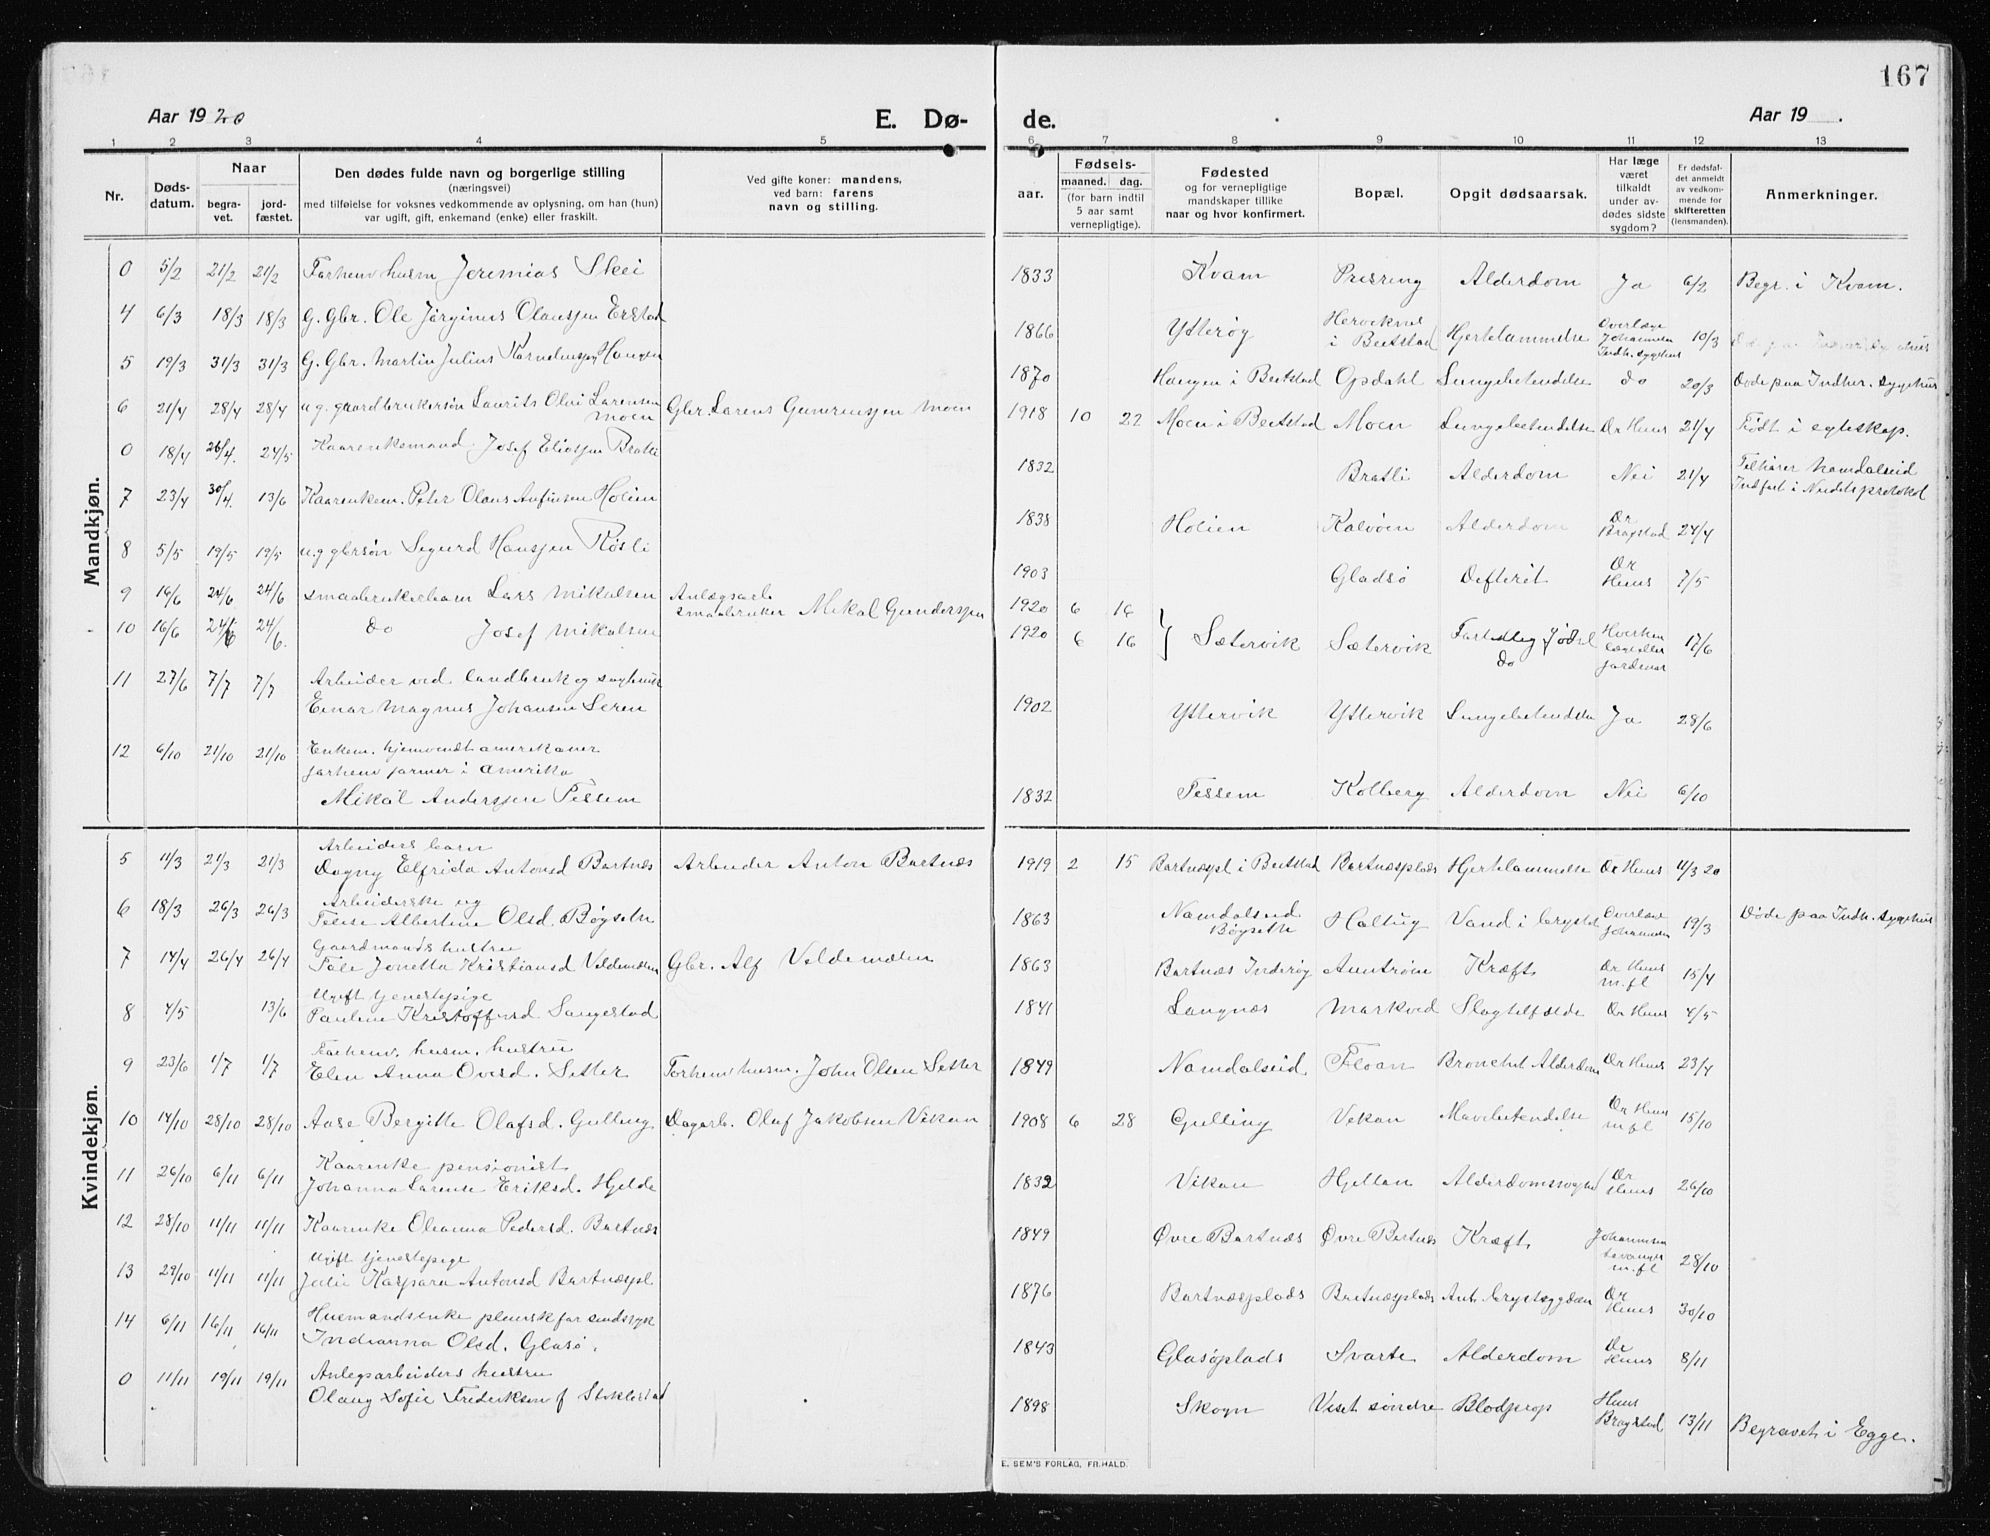 167
Aar 1920 E. Dø- de. Aar 19 .
1 2 3 4 5 6 7 8 9 10 11 12 13
Nr. Døds-datum. Naar begra-vet. jord-fæstet. Den dødes fulde navn og borgerlige stilling (næringsvei) med tilføielse for voksnes vedkommende av oplysning, om han (hun) var ugift, gift, enkemand (enke) eller fraskilt. Ved gifte koner: mandens, ved barn: farens navn og stilling. aar. Fødsels- maaned. dag. (for barn indtil 5 aar samt vernepligtige). Fødested og for vernepligtige mandskaper tillike naar og hvor konfirmert. Bopæl. Opgit dødsaarsak. Har læge været tilkaldt under av-dødes sidste sygdom? Er dødsfal-det anmeldt av vedkom-mende for skifteretten (lensmanden). Anmerkninger.
Mandkjøn.
0 5/2 21/2 21/2 Forhenv husm Jeremias Skei 1833 Kvam Prisring Alderdom Ja 6/2 Begr. i Kvam.
4 6/3 18/3 18/3 G. Gbr. Ole Jørginus Olaussen Erstad 1866 Ytterøy i Beitstad Hjertelammelse Overlæge Johannesen Indh. sygehus 10/3
5 19/3 31/3 31/3 G. Gbr. Martin Julius Korneliussen Haugen 1870 Haugen i Beitstad Opdahl Lungebetendelse do 20/3 Døde paa Indher. sygehus
6 21/4 28/4 28/4 ug. gaardbrukersøn Laurits Olui Larensen Moen Gbr. Larens Guneriussen Moen 1918 10 22 Moen i Beitstad Moen Lungebetendelse Dr Huus 21/4 Født i egteskap.
0 18/4 26/4. 24/5 Kaarenkemand Josef Eliassen Bratli 1832 Bratli Alderdom Nei 21/4 Tilhører Namdalseid Indført i Neidets protokol
7 23/4 30/4. 13/6 Kaarenkem. Peter Olaus Anfinsen Holien 1838 Holien Kalvøen Alderdom Dr Bragstad 24/4
8 5/5 19/5 19/5 ug gbrsøn Sigurd Hanssen Røsli 1903 Gladsø Defterit Dr Huus 7/5
9 16/6 24/6 24/6 Smaabrukerbarn Lars Mikalsen Anlægsarb. smaabruker Mikal Gunderssen 1920 6 16
10 16/6 24/6 24/6. do Josef Mikalsen 1920 6 16 } Sætervik Sætervik Fortidlig fødsel do Hverken læge eller jordmor 17/6
11 27/6 7/7 7/7 Arbeider ved landbruk og sagbruk
Einar Magnus Johansen Leren 1902 Ytlervik Ytlervik Lungebetendelse Ja 28/6
12 6/10 21/10 21/10 Enkem. hjemvendt amerikaner
forhenv farmer i Amerika
Mikal Anderssen Tessem 1832 Tessem Kolberg Alderdom Nei 6/10
Kvindekjøn.
5 11/3 21/3 21/3 Arbeiders barn
Dagny Elfrida Antonsd Bartnæs Arbeider Anton Bartnæs 1919 2 15 Bartnæspl i Beitstad Bartnæsplads Hjertelammelse Dr Huus 11/3 20
6 18/3 26/3 26/3 Arbeiderske ug
Albertine Olsd. Bøgseth 1863 Namdalseid Bøgseth Haltug Vand i brystet Overlæge Johannesen 19/3 Døde paa Indh. sygehus
7 14/4 26/4 26/4 Gaardmands hustru
Jonetta Kristiansd Veldemælen Gbr. Alf Veldemælen 1863 Bartnæs Inderøy Kræft Dr Huus m.fl 15/4
8 4/5 13/6 Ugift tjenestepige
Pauline Kristoffersd Langestad 1841 Langnæs Markved Slagtilfælde Dr Huus 4/5
9 23/6 1/7 1/7 Forhenv. husm. hustru
Elen Anna Ovesd. Setter Forhenv husm. John Olsen Setter 1849 Namdalseid Floan Bronchit Alderdom Dr Huus 23/4
10 14/10 28/10 28/10 Aase Bergitte Olafsd. Gulling Dagarb. Oluf Jakobsen Vikan 1908 6 28 Gulling Vekan Mavebetendelse Dr Huus m.fl 15/10
11 26/10 6/11 6/11 Kaarenke pensionist
Johanna Larense Eriksd. Hjelde 1832 Vikan Hjellan Alderdomssvaghed Dr Huus 26/10
12 28/10 11/11 11/11 Kaarenke Oleanna Pedersd. Bartnæs 1849 Øvre Bartnæs Øvre Bartnæs Kræft Johannesen Levanger m.fl 28/10
13 29/10 11/11 11/11 Ugift tjenestepige
Julie Kaspara Antonsd Bartnæspl 1876 Bartnæsplads Bartnæsplads Ant. brystsygdom Dr Huus 30/10
14 6/11 16/11 16/11 Husmandsenke pleiersk for sindssyk
Indianna Olsd. Glasø. 1843 Glasøplads Svarte Alderdom Dr Huus 8/11
0 11/11 19/11 19/11 Anlegsarbeiders hustru
Olaug Sofie Frederiksen f Stoklestad 1898 Skogn Viset søndre Blodprop Huus Bragstad 13/11 Begravet i Egge.
E. SEM'S FORLAG, FR.HALD.